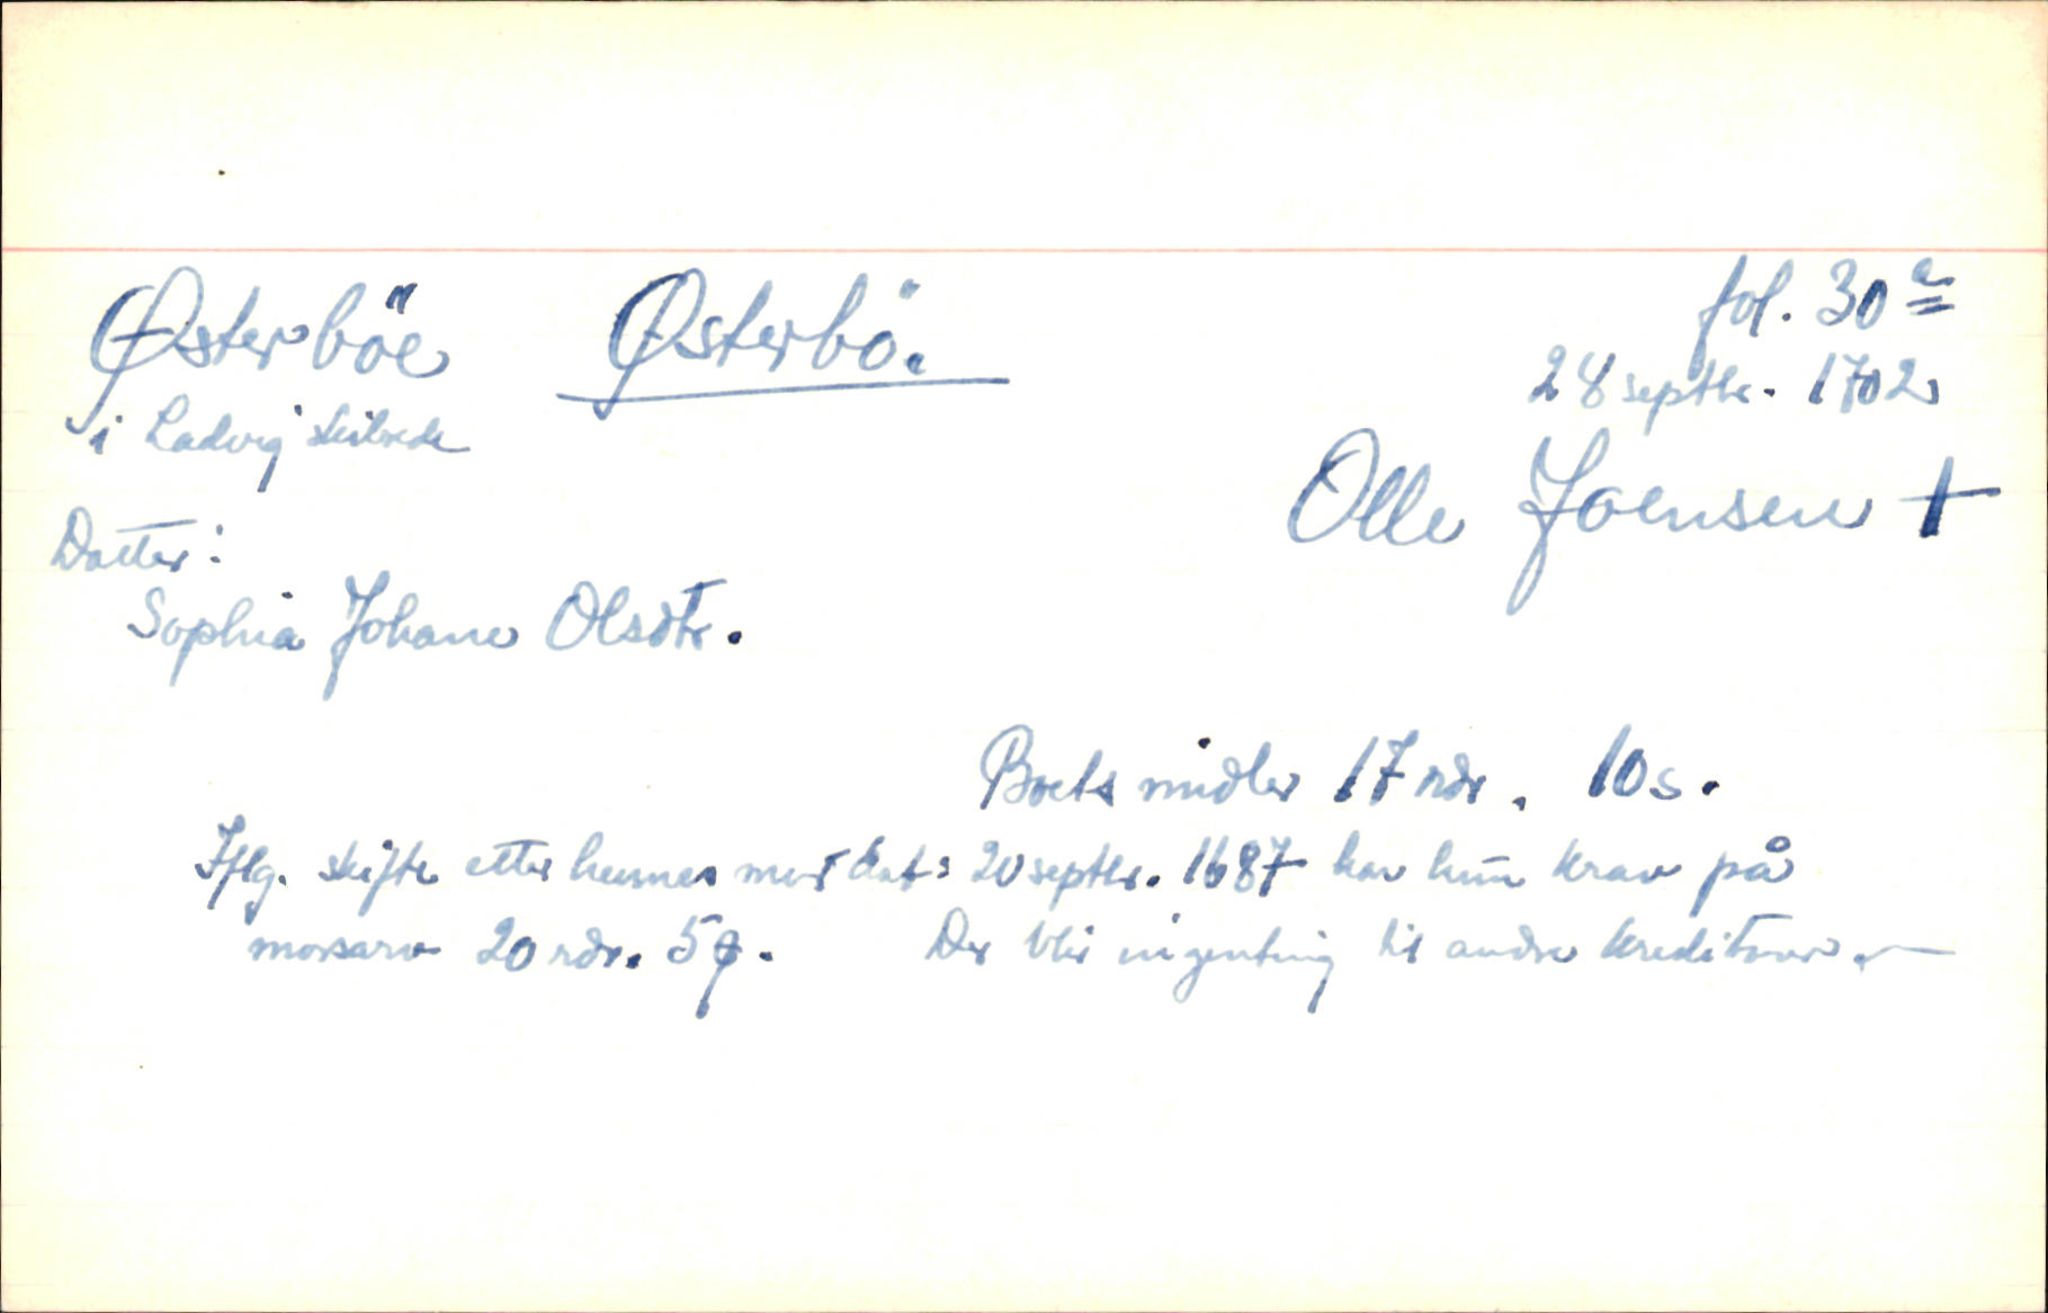 Østerböe Østerbö. fol. 30a
i Ladvig skibrede 28 septbr. 1702
Olle Joensen +
Datter:
Sophia Johane Olsdtr.
Boets midler 17 rdr. 10 s.
Iflg. skifte etter hennes mor dat: 20 septbr. 1687 har hun krav på
morsarv 20 rdr. 5 Der blir ingenting til andre kreditorer. —